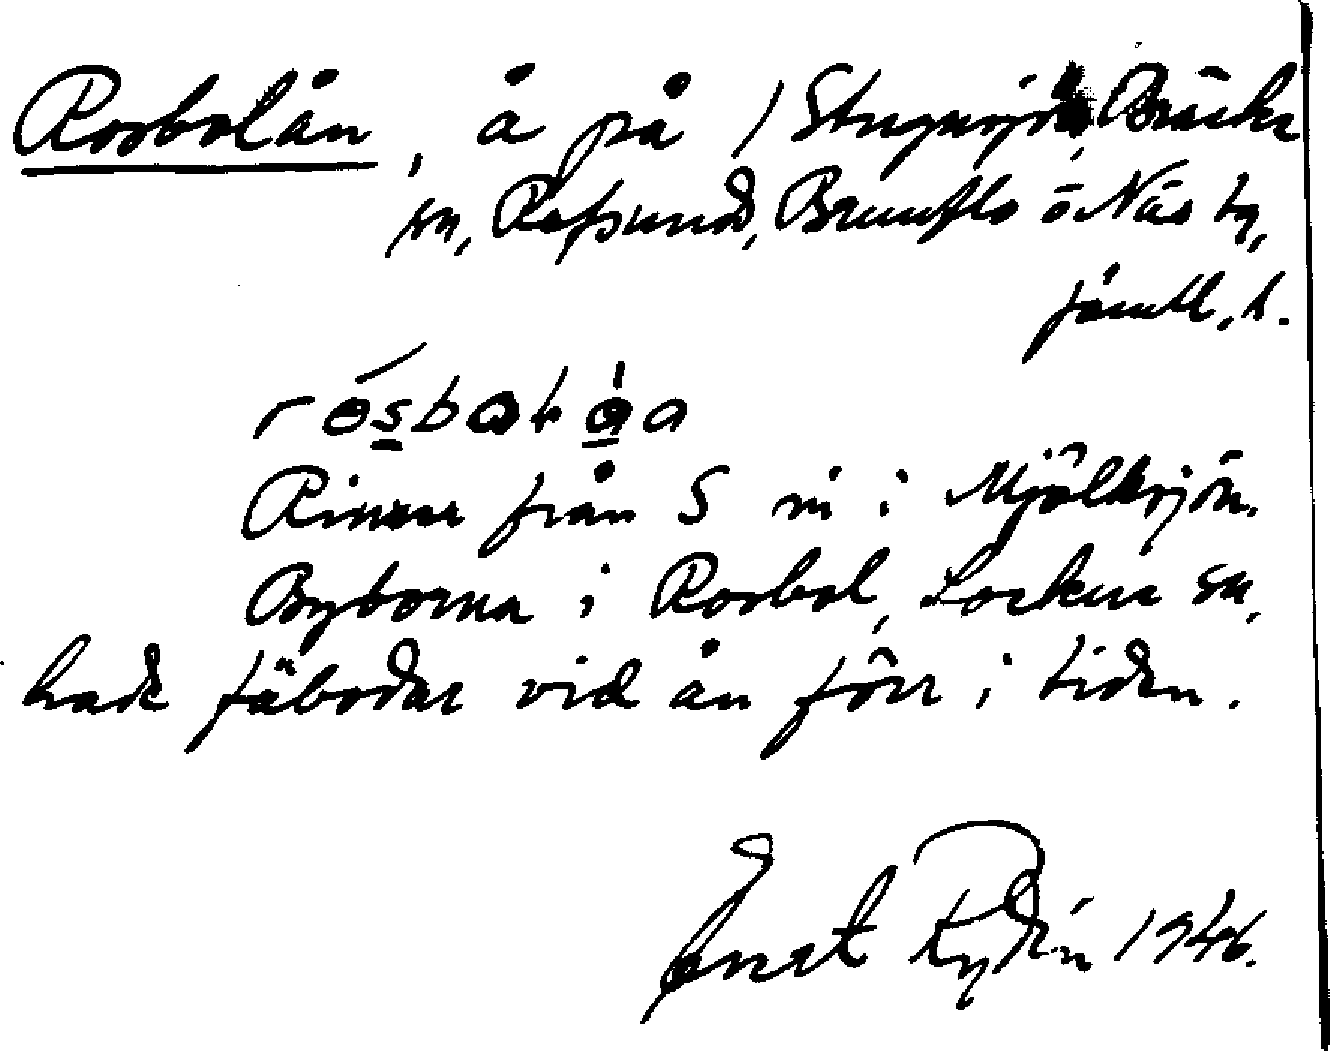 Rosbolån, å på / Stugusjön, Bräcke
sn, Refsund, Brunflo o Näs tg,
Jämtl. l.
Rinner från S in i Mjölksjön.
Byborna i Rosbol, Lockne sn,
hade fäbodar vid ån förr i tiden.
Ernst Rydén 1946.